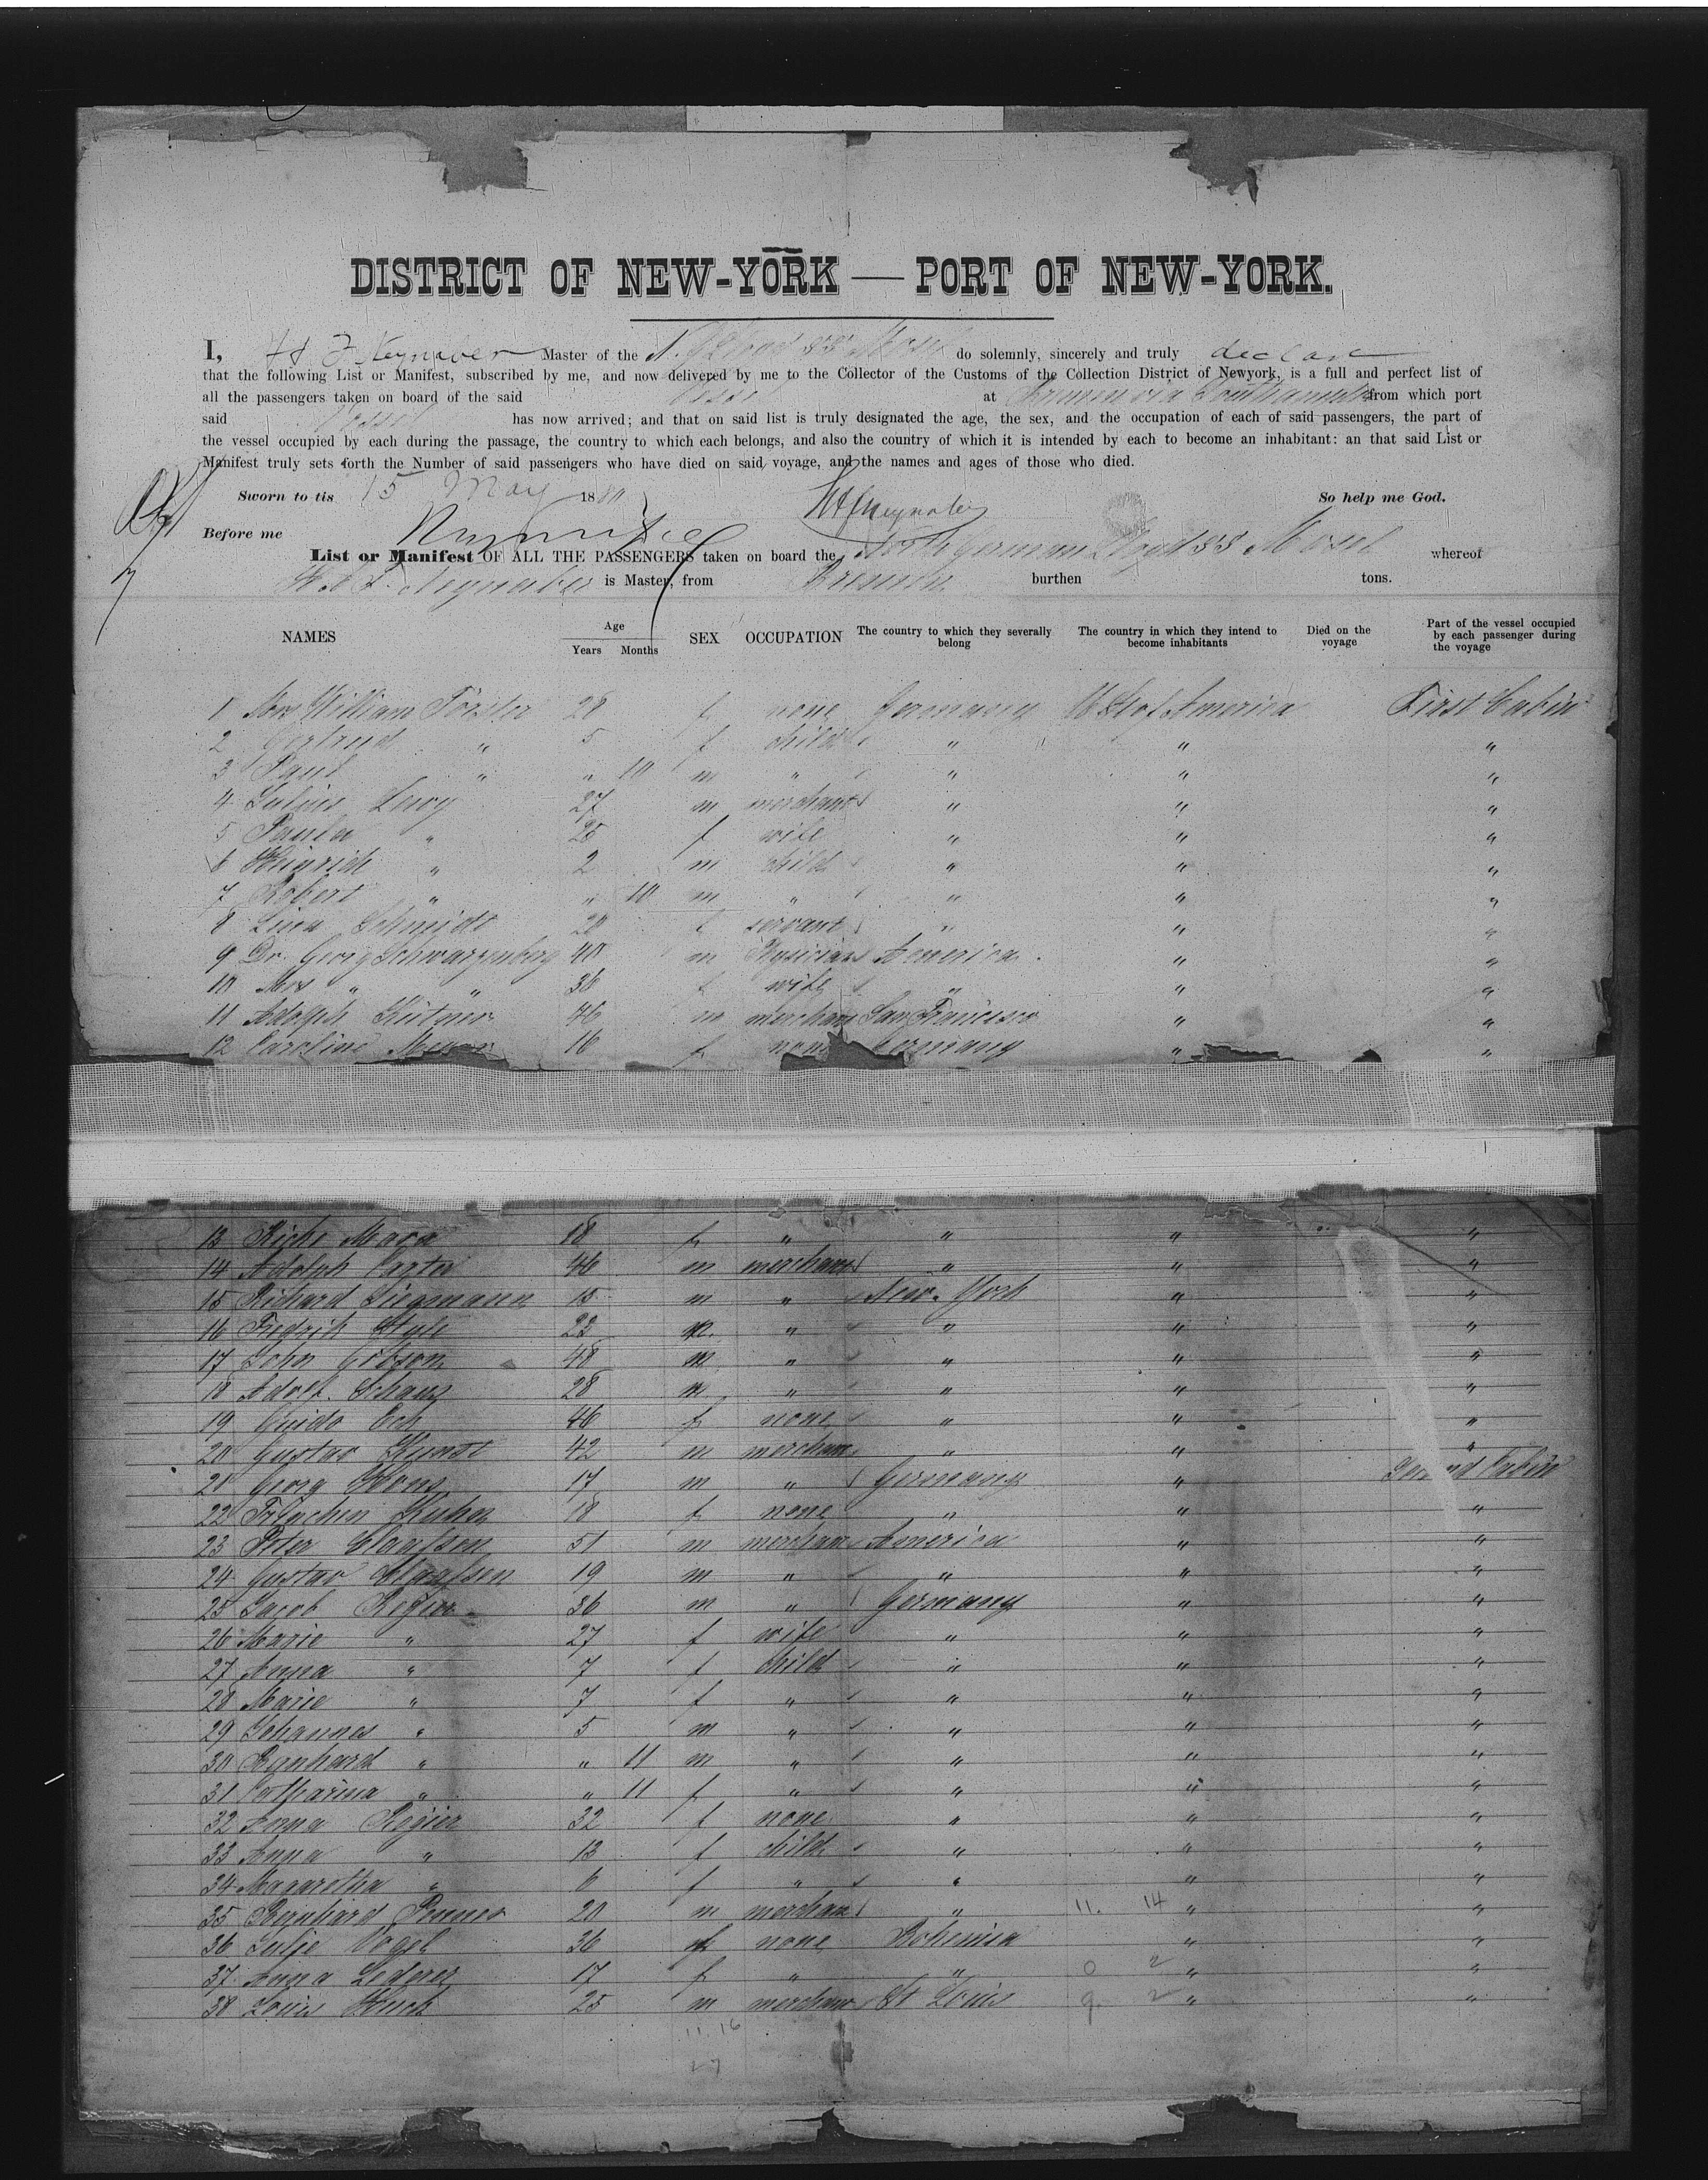 DISTRICT OF NEW-YORK — PORT OF NEW-YORK.
I, Master of the N. G. Lloyd SS Mosel do solemnly, sincerely and truly declare
that the following List or Manifest, subscribed by me, and now delivered by me to the Collector of the Customs of the Collection District of Newyork, is a full and perfect list of
all the passengers taken on board of the said Vessel at Bremen via Southampton from which port
said Vessel has now arrived; and that on said list is truly designated the age, the sex, and the occupation of each of said passengers, the part of
the vessel occupied by each during the passage, the country to which each belongs, and also the country of which it is intended by each to become an inhabitant: an that said List or
Manifest truly sets forth the Number of said passengers who have died on said voyage, and the names and ages of those who died.
Sworn to tis 15 May 1880 So help me God.
Before me
List or Manifest OF ALL THE PASSENGERS taken on board the North German Lloyd SS Mosel whereof
is Master, from Bremen burthen tons.
NAMES Age Years Months SEX OCCUPATION The country to which they severally belong The country in which they intend to become inhabitants Died on the voyage Part of the vessel occupied by each passenger during the voyage
1 Mrs William Förster 28 f none Germany U St of America First Cabin
2 Gertrud " 5 f child " " "
3 Paul " " 10 m " " " "
4 Julius Levy 27 m merchant " " "
5 Paula " 25 f wife " " "
6 Heinrich " 2 m child " " "
7 Robert " " 10 m " " " "
8 Lina Schmidt 20 f servant " " "
9 Dr. Georg Schwarzenberg 40 m Physician America " "
10 Mrs " " 36 f wife " " "
11 Adolph 46 m merchant San Francisco " "
12 Caroline Meyer 16 f none Germany " "
13 18 f " " " "
14 Adolph 46 m merchant " " "
15 Richard Siegmann 15 m " New-York " "
16 Fredrik 23 m " " " "
17 John 48 m " " " "
18 Adolf 28 m " " " "
19 Guido 46 f none " " "
20 Gustav Kunst 42 m merchant " " "
21 Georg 17 m " Germany " Second Cabin
22 Kuhn 18 f none " " "
23 Peter Claassen 51 m merchant America " "
24 Gustav Claassen 19 m " " " "
25 Jacob Regier 36 m " Germany " "
26 Marie " 27 f wife " " "
27 Anna " 7 f child " " "
28 Marie " 7 f " " " "
29 Johannes " 5 m " " " "
30 Bernhard " " 11 m " " " "
31 Catharina " " 11 f " " " "
32 Anna Regier 32 f none " " "
33 Anna " 13 f child " " "
34 Magaretha " 6 f " " " "
35 Bernhard Penner 20 m merchant " 11. 14 " "
36 Julie Vogel 36 f none Bohemia " "
37 Anna Lederer 17 f " " 0 2 " "
38 Louis 25 m merchant St Louis 9. 2 " "
11. 16
27